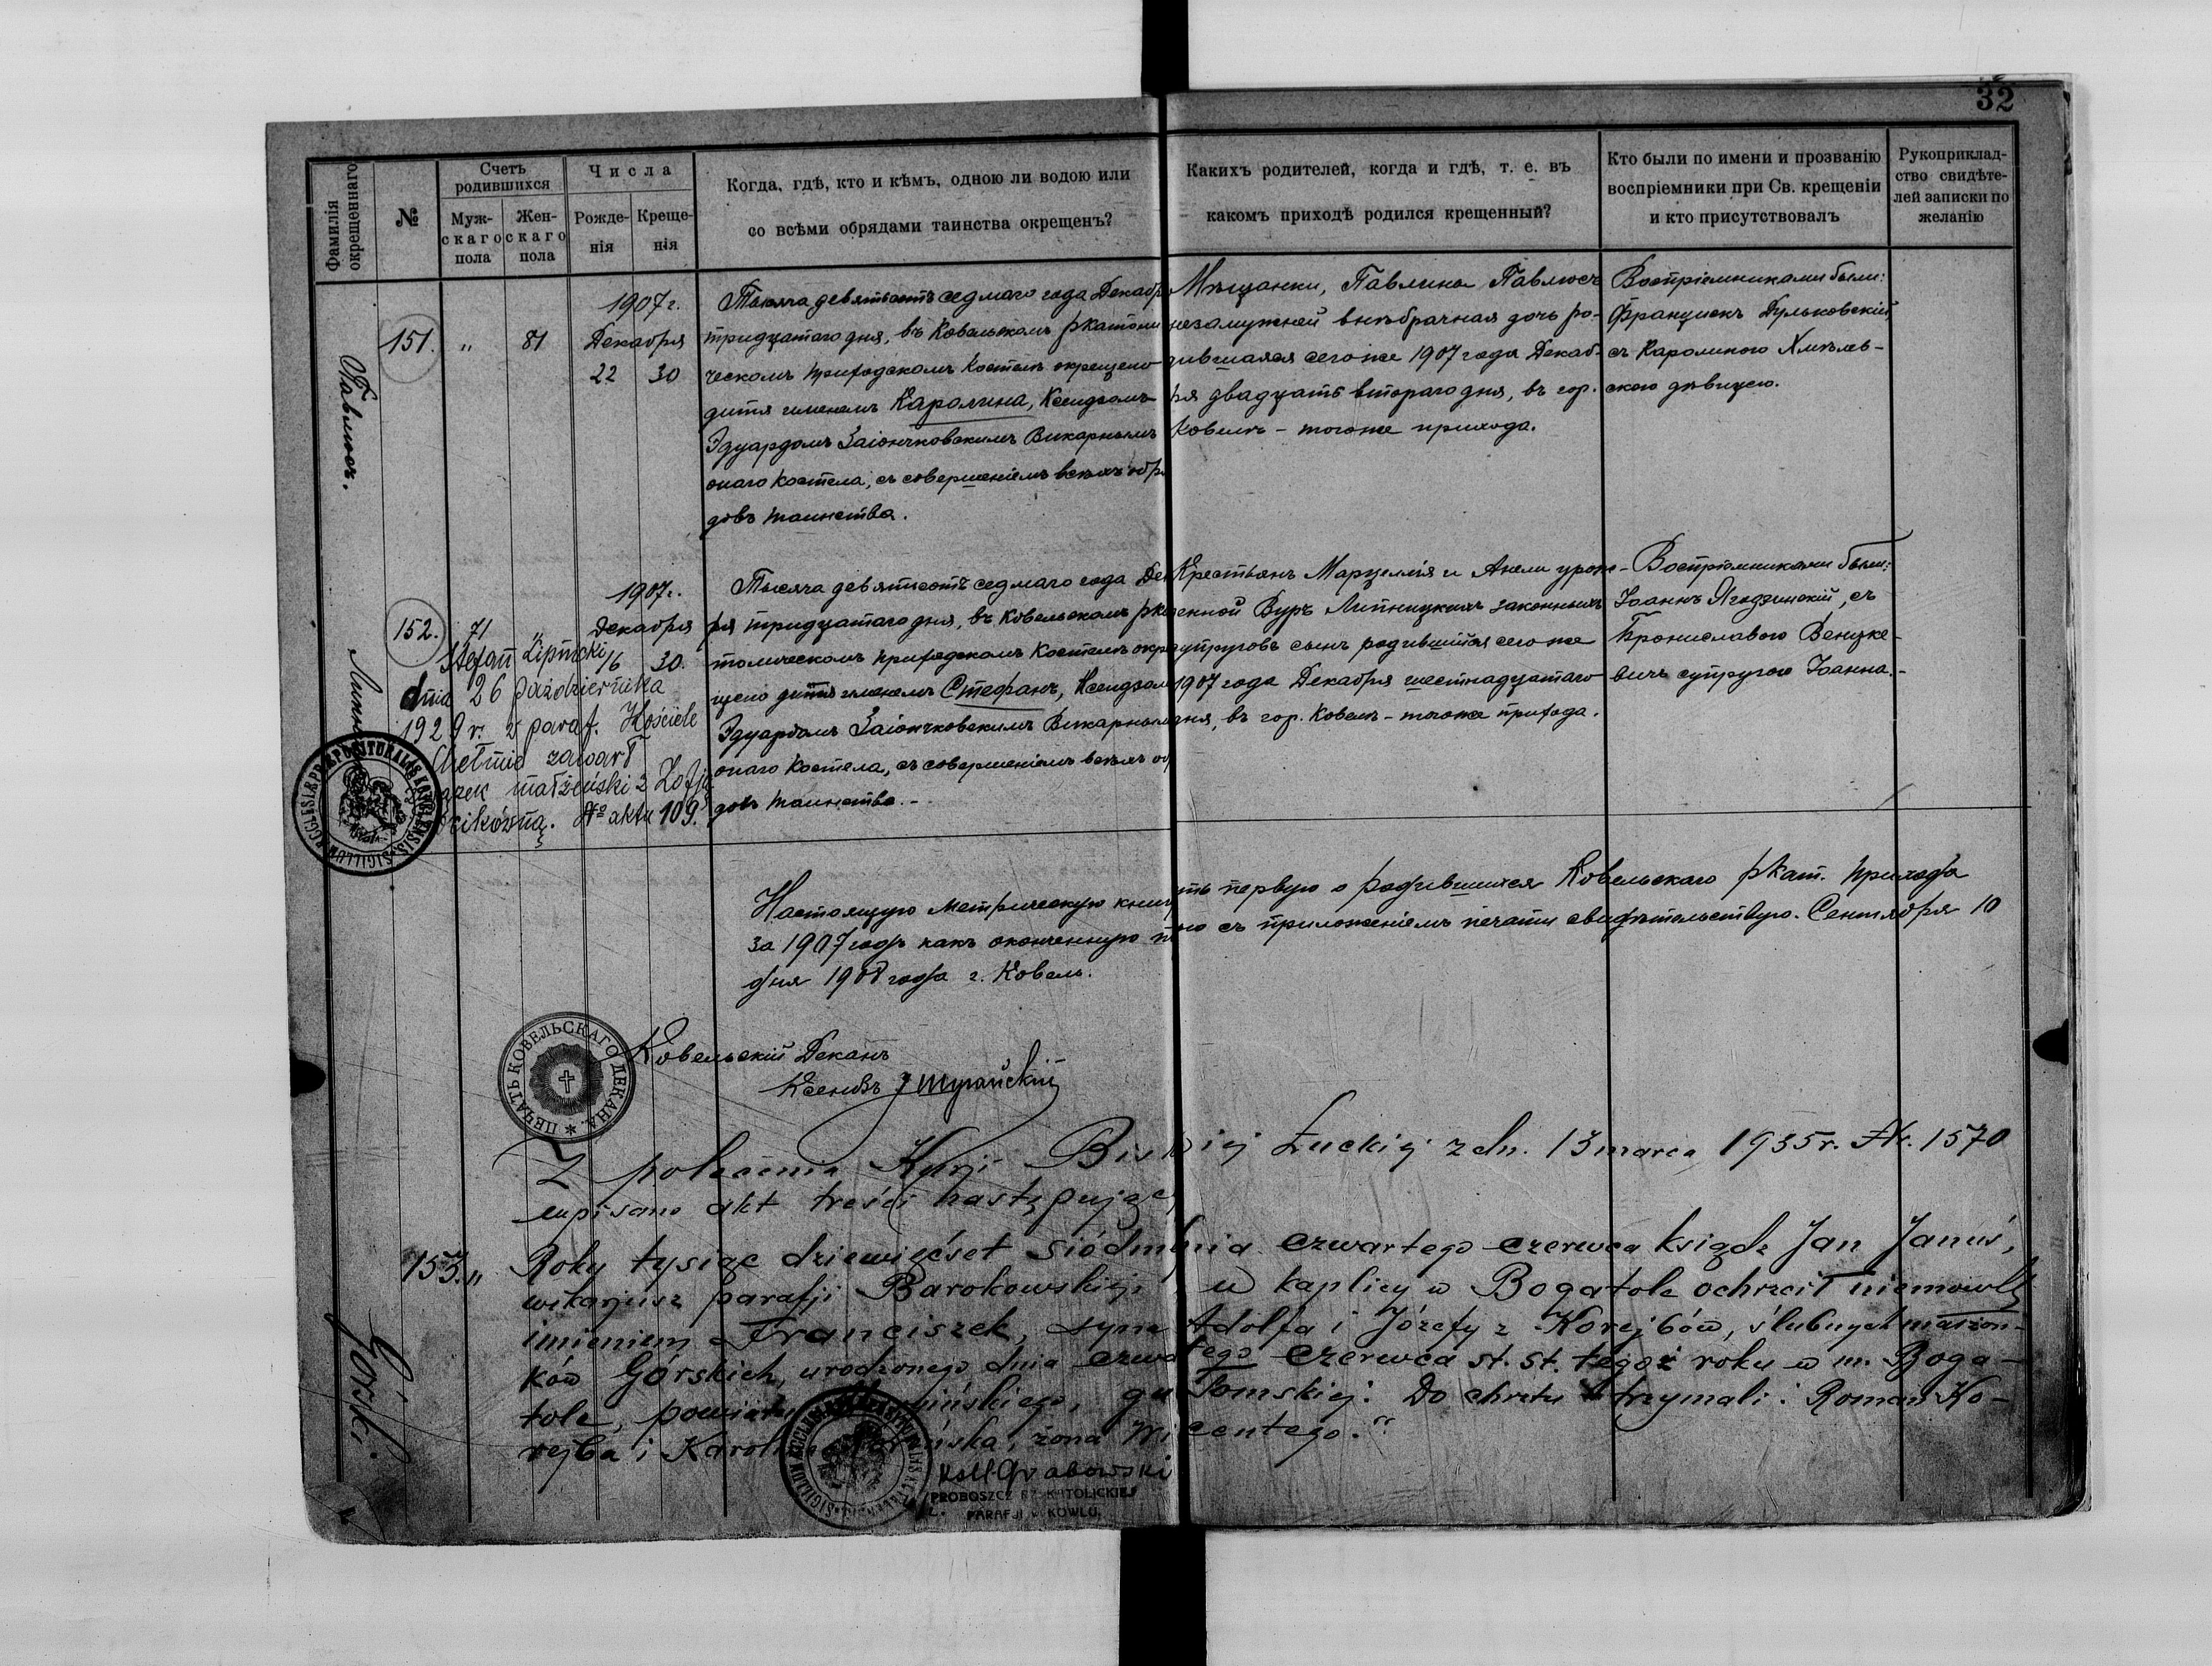 32
Фамилія окрещеннаго
№
Счетъ родившихся
Мужскаго пола
Женскаго пола
Числа
Рожденія
Крещенія
Когда, гдѣ, кто и кѣмъ, одною ли водою или
со всѣми обрядами таинства окрещенъ?
Какихъ родителей, когда и гдѣ, т. е. въ
какомъ приходѣ родился крещенный?
Кто были по имени и прозванію
воспріемники при Св. крещеніи
и кто присутствовалъ
Рукоприклад-
ство свидѣте-
лей записки по
желанію
Павлюсъ.
151.
"
81
1907 г.
Декабря
22 30
Тысяча девятьсотъ седмаго года Декабр
тридцатаго дня, въ Ковельскомъ ркатоли
ческомъ приходскомъ костелѣ окрещено
дитя именемъ Каролина, Ксендзомъ
Эдуардомъ Заіончковскимъ Викарнымъ
онаго костела, съ совершеніемъ всѣхъ обр
довъ таинства.
Мѣщанки, Павлина Павлюсъ
незамужней внѣбрачная дочь ро-
дившаяся сего же 1907 года Декаб-
ря двадцать втораго дня, въ гор.
Ковелѣ - того же прихода.
Воспріемниками были:
Францискъ Дульковскій
съ Каролиною Хмѣлев-
скою дѣвицею.
152.
71
"
1907 г.
Декабря
16 30.
Stefan Lipnicki
dnia 26 października
1929 r. w paraf. Kościele
Chełmie zawarł
małżeński z Zofją
№ aktu 109.
Тысяча девятьсотъ седмаго года Де
ря тридцатаго дня, въ Ковельскомъ рка
толическомъ приходскомъ костелѣ окр
щено дитя именемъ Стефанъ, Ксендзом
Эдуардомъ Заіончковскимъ Викарным
онаго костела, съ совершеніемъ всѣхъ о
довъ таинства. -
Крестьянъ Марцеллія и Анели урож-
денной Буръ Липницкихъ законныхъ
супруговъ сынъ родившійся сего же
1907 года Декабря шестнадцатаго
дня, въ гор. Ковелѣ - того же прихода.
Воспріемниками были:
Іоаннъ Ягодзинскій, съ
Брониславою Венцке-
вичъ супругою Іоанна. -
Настоящую метрическую книг ть первую о родившихся Ковельскаго ркат. прихода
за 1907 годъ какъ оконченную п ю съ приложеніемъ печати свидѣтельствую. Сентября 10
дня 1908 года г. Ковель.
ПЕЧАТЬ КОВЕЛЬСКАГО ДЕКАНА *
Ковельскій Деканъ
Ксендзъ
Z polecenia Kurji Bis iej Łuckiej z dn. 13 marca 1935 r. Nr. 1570
wpisano akt treści następując
Górski.
153. "
Roku tysiąc dziewięćset siódm nia czwartego czerwca ksiądz Jan Januś,
wikarjusz parafji Barokowskiej, w kaplicy w Bogatole ochrzcił niemowlę
imieniem Franciszek, syna Adolfa i Józefy z Korejbów, ślubnych małżon-
ków Górskich, urodzonego dnia czwartego czerwca st. st. tegoż roku w m. Boga-
tole, powiatu ińskiego, gu Tomskiej. Do chrztu trzymali: Roman Ko-
rejba i Karol ińska, żona Wincentego."
Grabowski
PROBOSZCZ RZ.-KATOLICKIEJ
PARAFJI w KOWLU.